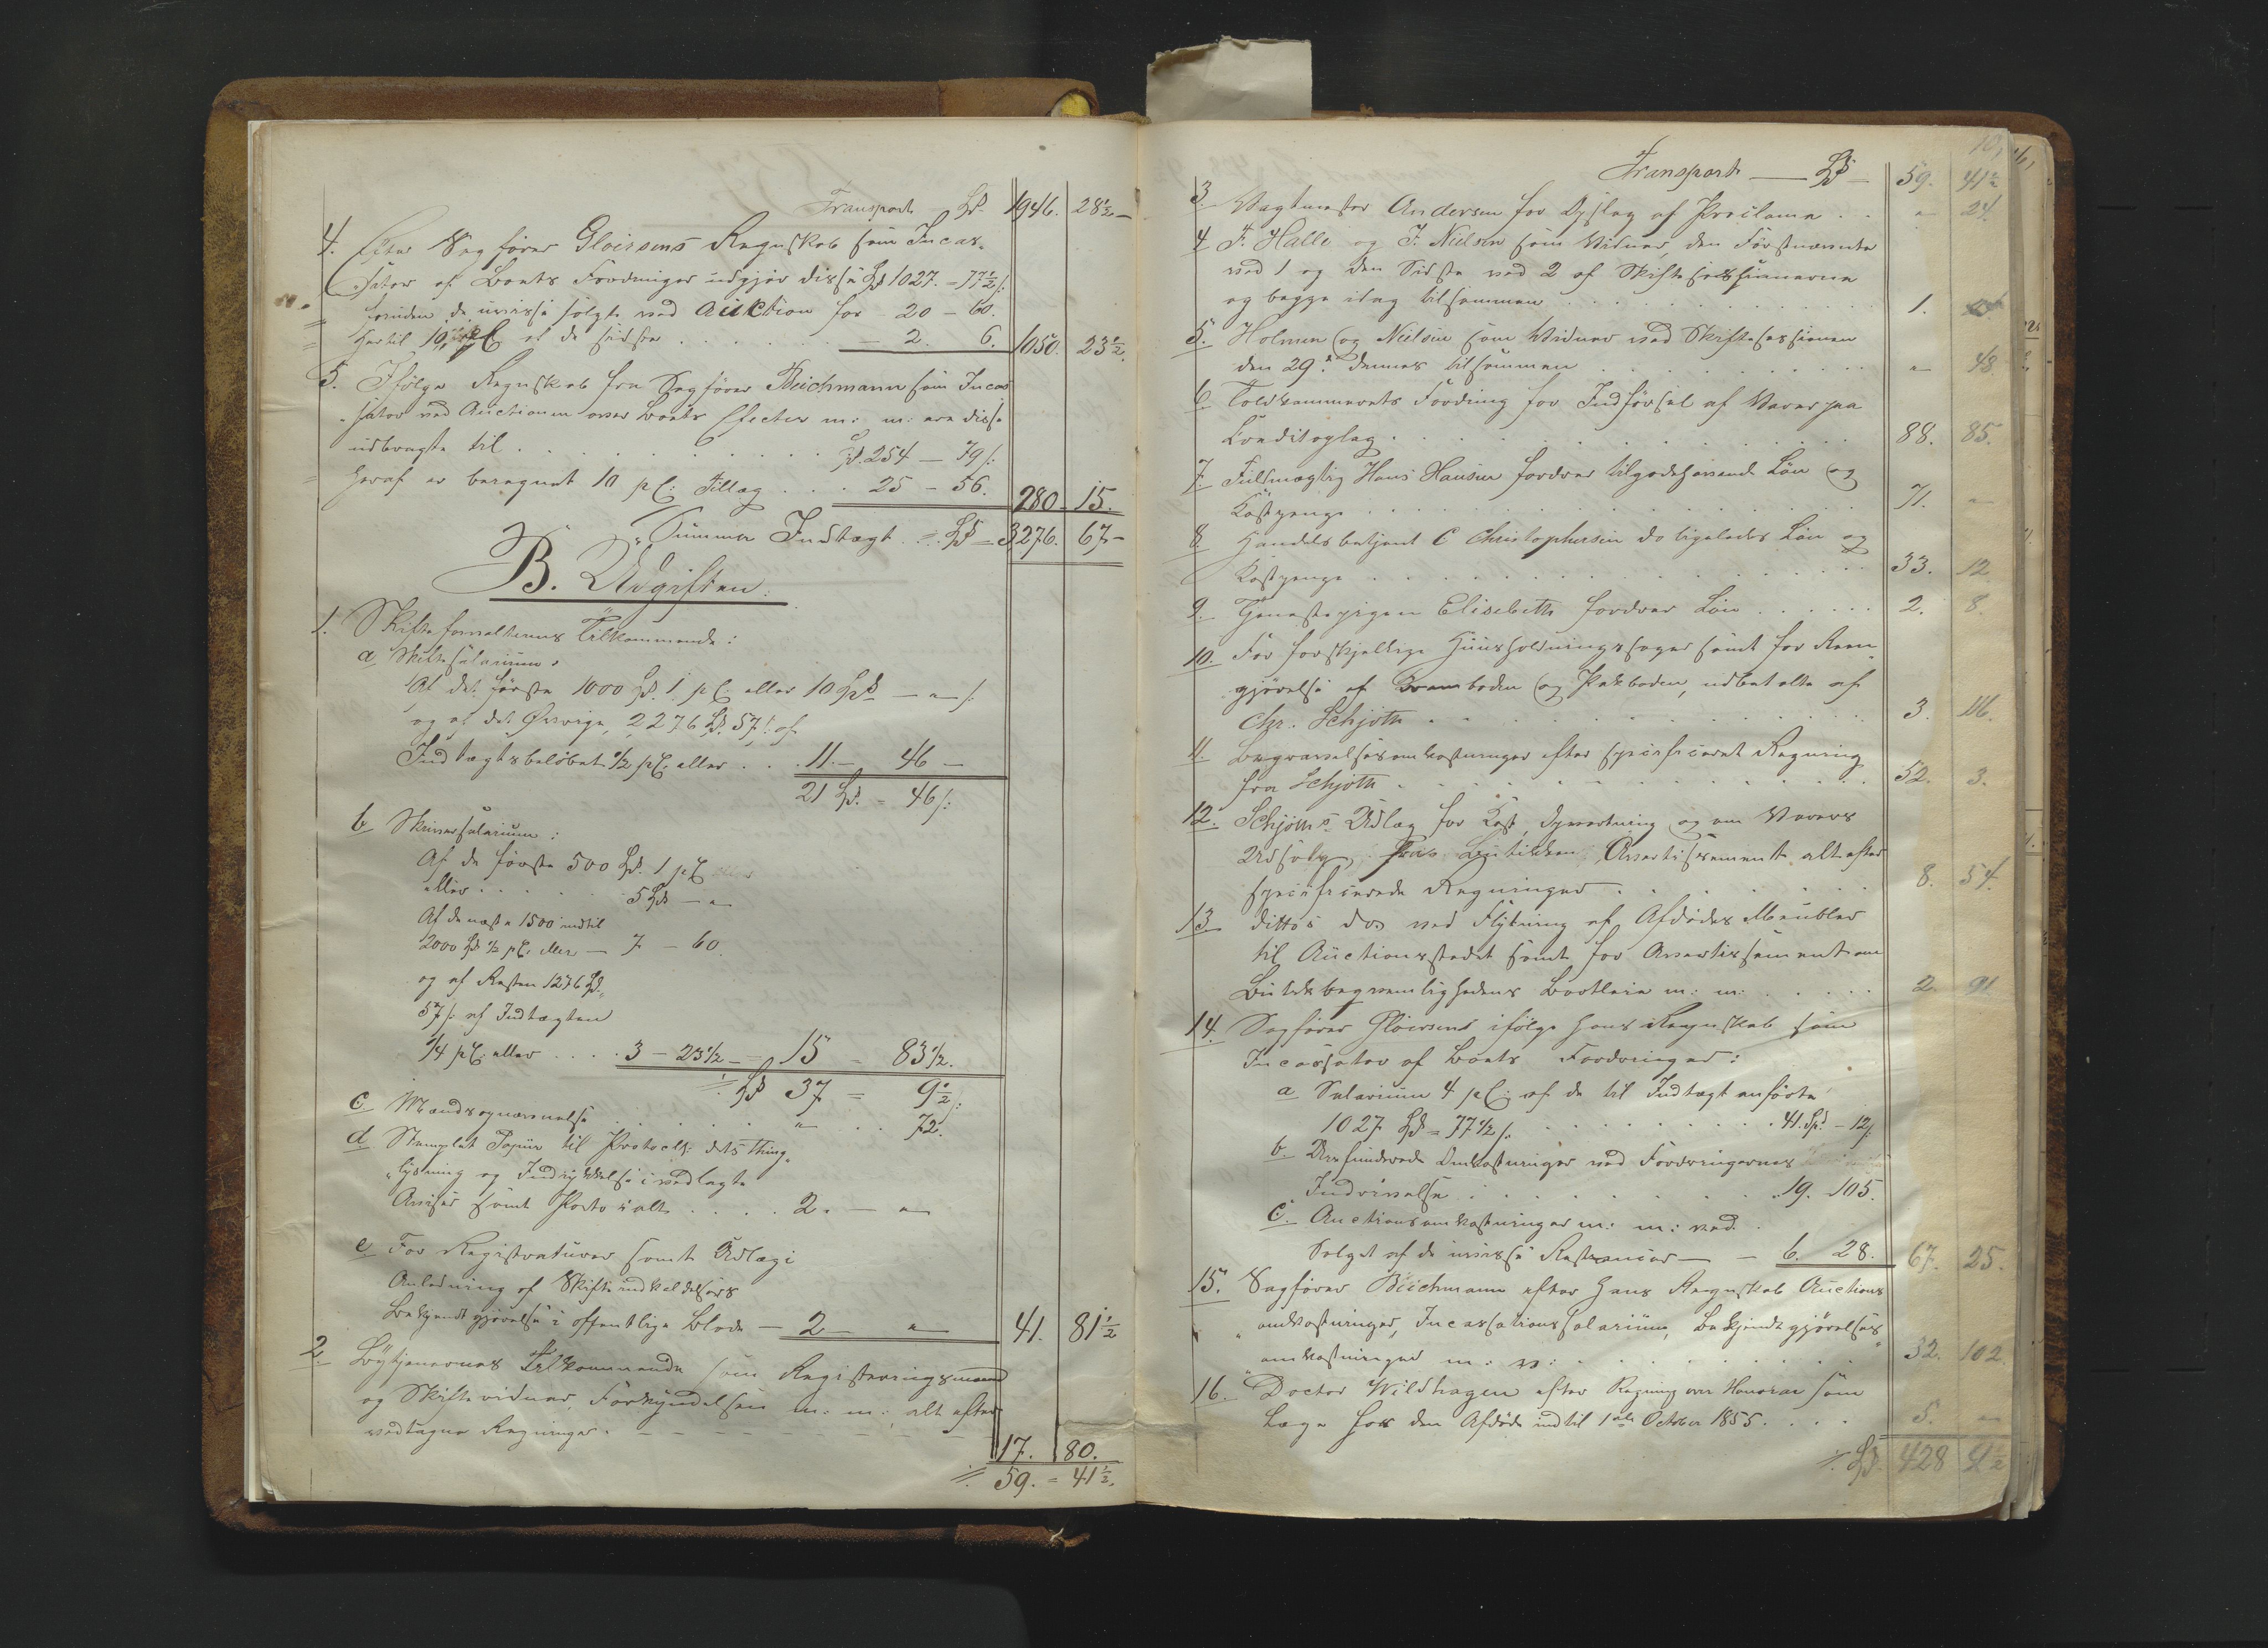 Transport Spd. 1946. 28½ –
4. Efter Sagfører Gloersens Regnskab som Incas„
sator af Boets Fordringer udgjør disse Spd 1027. – 77½ /:
foruden de uvisse solgte ved Auction for – 20 – 60.
Hertil 10 pC af de sidste . . . . . – 2. 6. 1050. 23½.
5. Ifølge Regnskab fra Sagfører Büchmann som Incas
„sator ved Auctionen over Boets Effecter m: m: ere disse
udbragte til . . . . . . . Spd. 254 – 79 /:
Heraf er beregnet 10 pC: Tillæg . . . 25 – 56. 280. 15.
Summa Indtægt . ./. Spd = 3276. 67 –
B. Udgiften.
1. Skifteforvalterens Tilkommende:
a Skiftesalarium.
Af det første 1000 Spd. 1 pC. eller 10 Spd – „ – /:
og af det Øvrige, 2276 Spd. 57 /: af
Indtægtsbeløbet ½ pC. eller . . . 11. – 46 –
21 Spd. = 46 /:
b Skriversalarium:
Af de første 500 Spd. 1 pC
eller . . . . . 5 Spd – „ –
Af de næste 1500 indtil
2000 Spd ½ pC. eller – 7 – 60.
og af Resten 1276 Spd.
57 /: af Indtægten
¼ pC: eller . . . . 3 – 23½ – 15 = 83½.
./. Spd 37 = 9½ /:
c. Mændsopnævnelse . . . . . . „ . . . 72.
d. Stemplet Papiir til Protocol: dets Thing„
„lysning og Indrykkelse i vedlagte
Aviser samt Porto ialt . . . . 2. – „ –
e For Registraturer samt Udlæg i
Anledning af Skifteindkaldelsers
Bekjendtgjørelse i offentlige Blade – 2 – „ – 41. 81½
2. Bytjenernes Tilkommende som Registreringsmænd
og Skiftevidner, Forkyndelsen m: m: alt efter
vedtagne Regninger. – – – – – 17. 80.
./. 59. = 41½.
Transport – Spd – 59. 41½
3. Vagtmester Andersen for Opslag af Proclama . . „ 24.
4 F. Halle og J. Nielsen som Vidner, den Førstnævnte
ved 1 og den Sidste ved 2 af Skiftesessionerne
og begge idag tilsammen . . . . . . . 1.
5. Holmen og Nielsen som Vidner ved Skiftesessionen
den 29. dennes tilsammen . . . . . . „ 48
6. Toldkammerets Fordring for Indførsel af Varer paa
Creditoplag . . . . . . . . . 88. 85.
7. Fuldmægtig Hans Hansen fordrer tilgodehavende Løn og
Kostpenge . . . . . . . . . 71. „
8. Handelsbetjent C Christophersen do ligeledes Løn og
Kostpenge . . . . . . . . . 33. 12
9. Tjenestepigen Elisebeth fordrer Løn . . . . . 2. 8.
10. For forskjellige Huusholdningssager samt for Reen„
gjørelse af Kramboden og Pakboden, udbetalte af
Chr. Schjøth . . . . . . . . 3. 116.
11. Begravelsesomkostninger efter specificeret Regning
fra Schjøth . . . . . . . . 52. 3.
12. Schjøths Udlæg for Kost, Opvartning og om Varers
Udsalg, fra Butikken, Avertissement alt efter
specificerede Regninger . . . . . . 8. 54.
13 dittos do ved Flytning af Afdødes Meubler
til Auctionsstedet samt for Avertissement om
Butikbeqvemlighedens Bortleie m: m: . . . . . 2. 91.
14. Sagfører Gloersens ifølge hans Regnskab som
Incassator af Boets Fordringer:
a Salarium 4 pC. af de til Indtægt anførte
1027 Spd = 77½ /: . . . . . . . . 41. Spd. – 12 /:
b Refunderede Omkostninger ved Fordringernes
Inddrivelse . . . . . . . . 19. 105.
c. Auctionsomkostninger m: m: ved
Salget af de uvisse Restancer – – 6. 28. 67. 25.
15. Sagfører Büchmann efter hans Regnskab Auctions
„omkostninger, Incassationssalarium, Bekjendtgjørelses„
„omkostninger m: v: . . . . . . . 32. 102.
16. Doctor Wildhagen efter Regning over Honorar som
Læge hos den Afdøde indtil 1ste October 1855. . . . 5. „
./. Spd. 428 9½